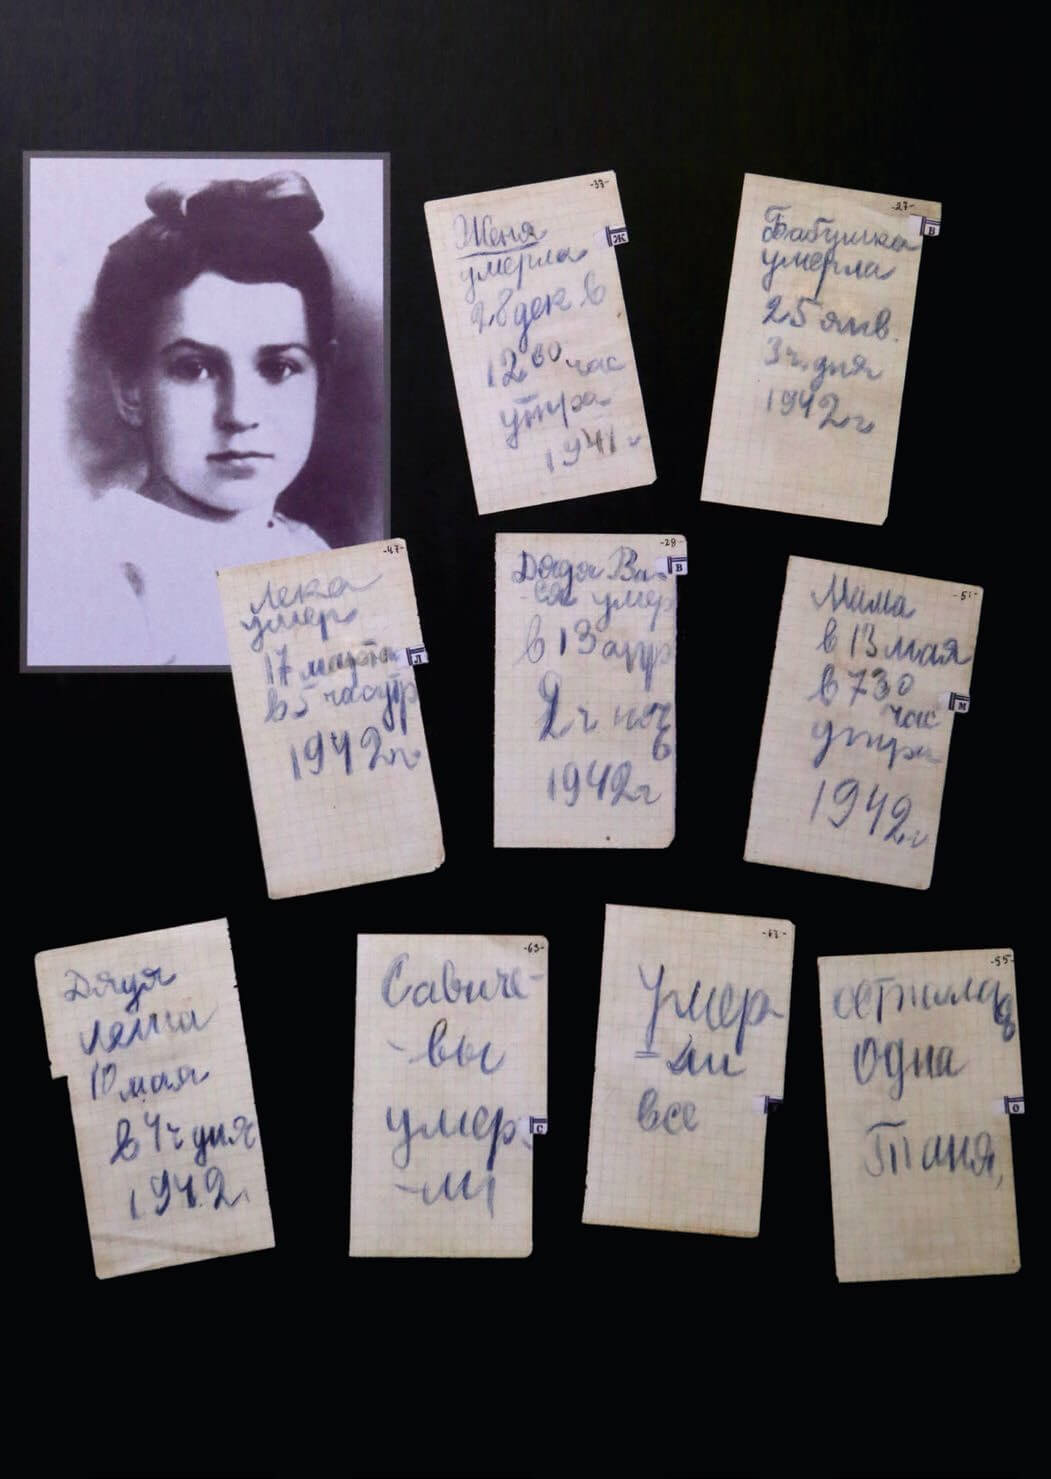 -37-
Ж
Женя
умерла
28 дек в
12 00 час
утра
1941 г
-27-
В
Бабушка
умерла
25 янв.
3 ч. дня
1942 г
-47-
Л
Лека
умер
17 марта
в 5 час утр
1942 г
-28-
В
Дядя Ва-
ся умер
в 13 апр
2 ч ноч
ь
1942 г
М
Мама
в 13 мая
в 7 30
час
утра
1942 г
Дядя
Леша
10 мая
в 4 ч дня
1942
-63-
С
Савиче-
-вы
умер.
-ли
Умер
-ли
все
-55-
О
осталась
одна
Таня,